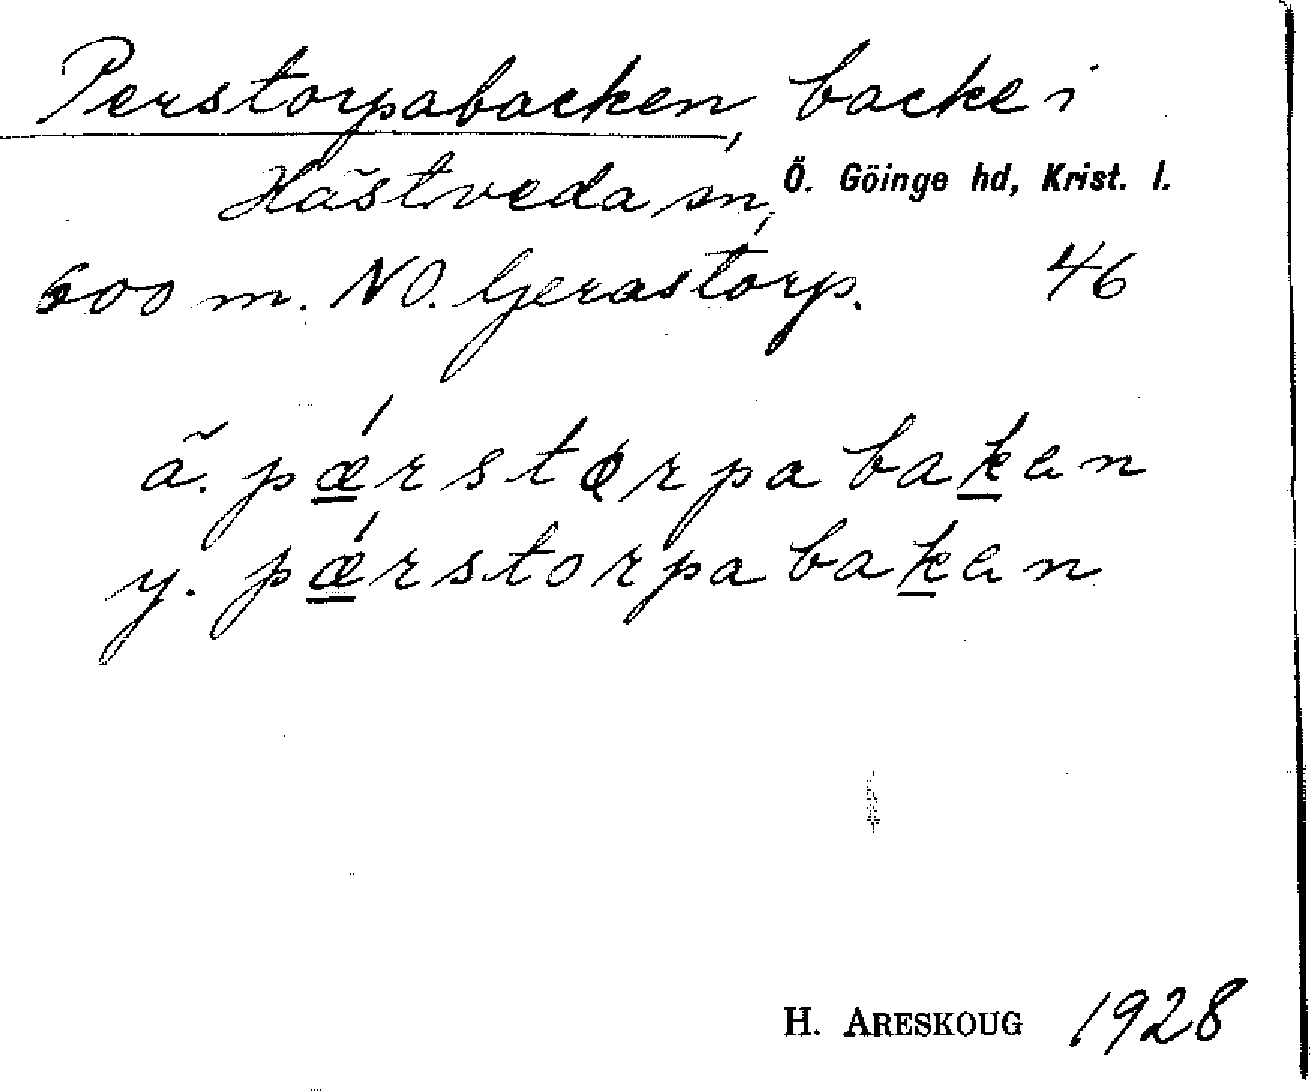 Perstorpabacken, backe i
Hästveda sn, Ö. Göinge hd, Krist. l.
600 m. NO. Gerastorp. 46
ä. pǽrstørpabaken
y. pǽrstorpabaken
H. ARESKOUG 1928